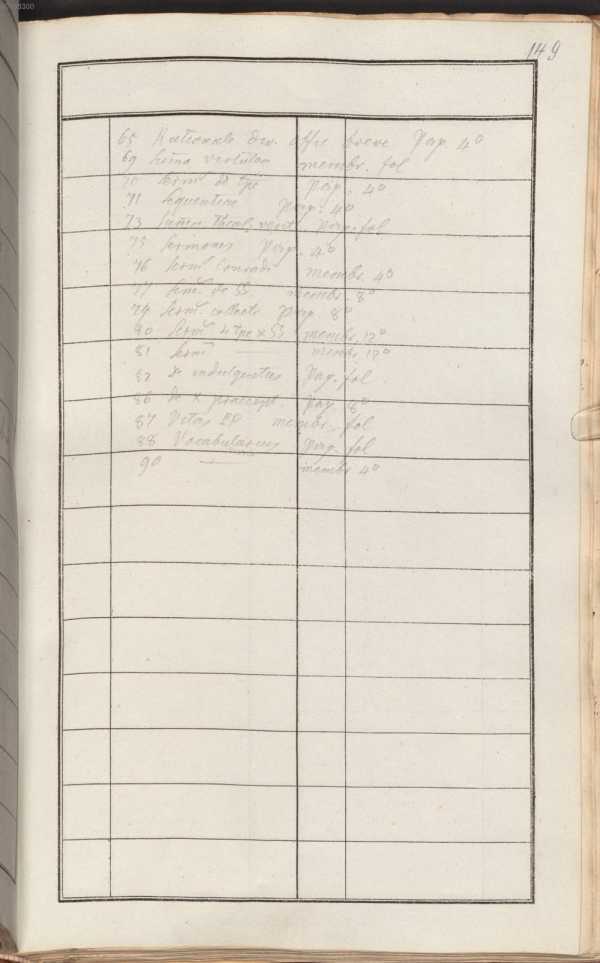 149
65 Rationale div. offic breve Pap. 4º
69 Suma virtutum membr. fol
70 Serm. de tpe pap. 4º
71 Sequentiae Pap. 4º
73 pap. fol
75 Sermones Pap. 4º
76 Serm. Conradi membr. 4º
77 Serm. de SS. membr. 8º
79 Serm. collecti pap. 8º
80 Serm. d tpe & SS membr. 12º
81 Serm. — membr. 12º
82 de indulgentiis Pap. fol
86 de X praecept. Pap 8º
87 Vitas PP membr. fol
88 Vocabularius Pap. fol
90 — membr. 4º